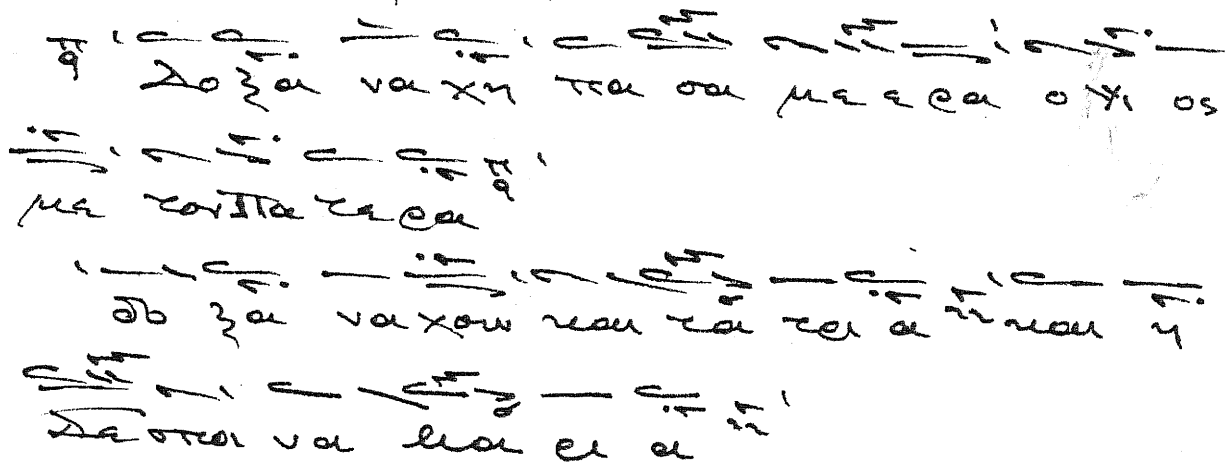 Δο ξα να χη πα σα με ε ρα ο γι ος
με τον Πα τε ρα
δο ξα να χουν και τα τρι α και η
Δε σποι να Μα ρι α